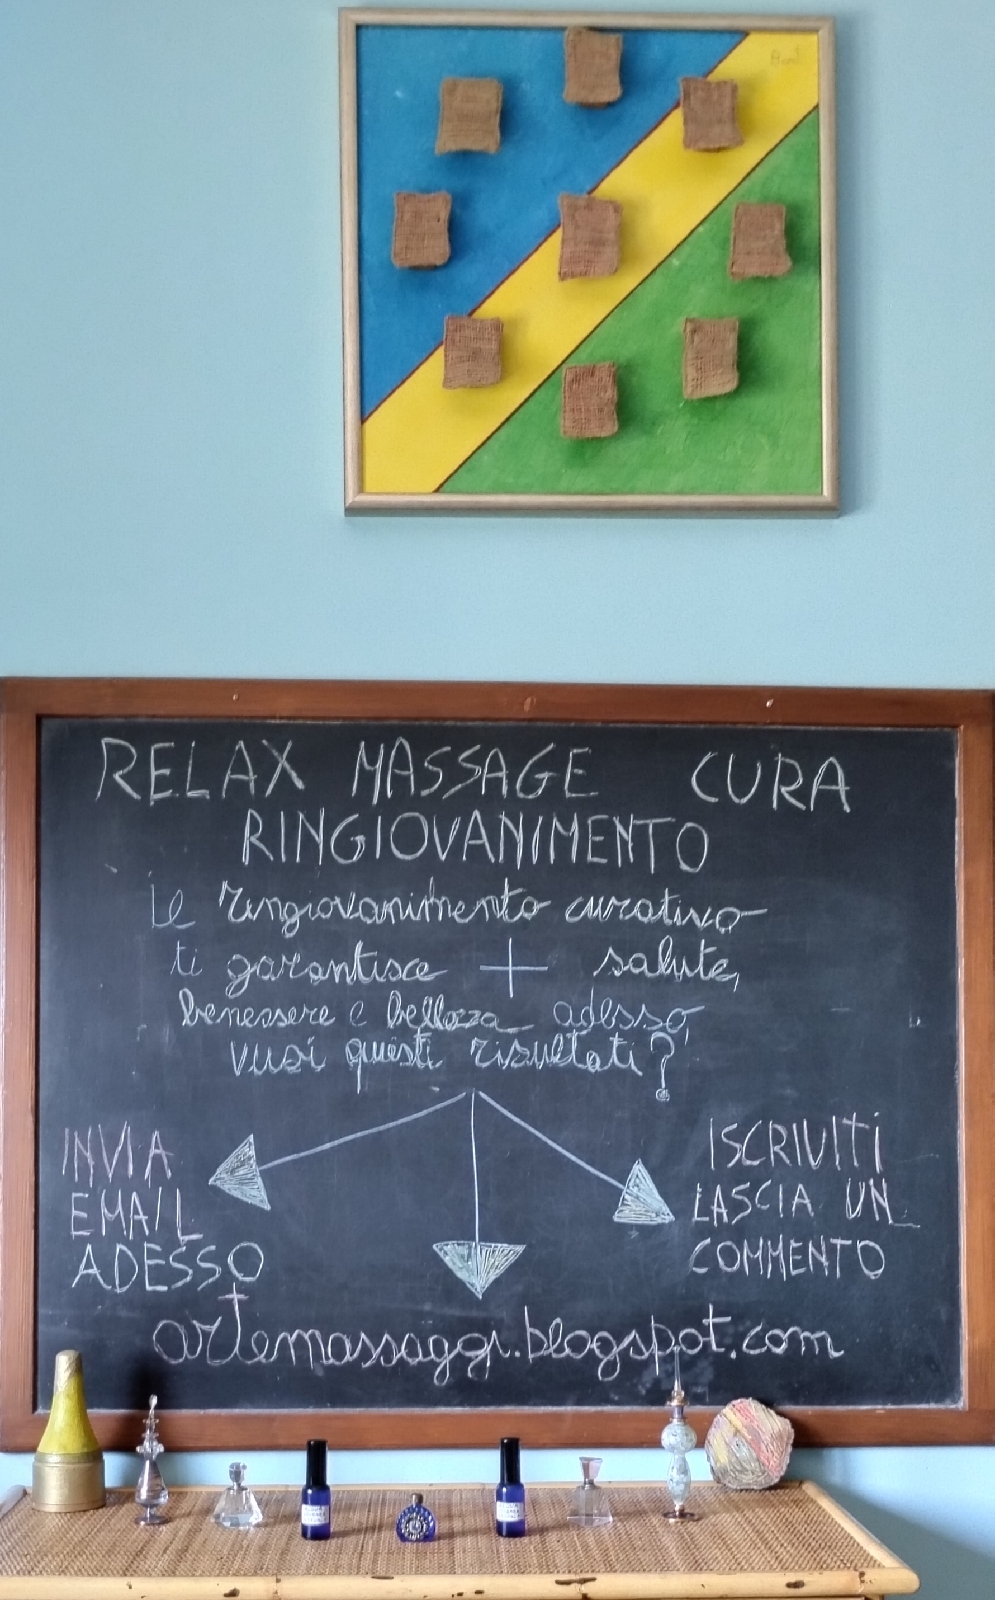 RELAX MASSAGE CURA
RINGIOVANIMENTO
il ringiovanimento curativo
ti garantisce + salute,
benessere e bellezza adesso,
vuoi questi risultati?
INVIA
EMAIL
ADESSO
ISCRIVITI
LASCIA UN
COMMENTO
artemassaggi.blogspot.com